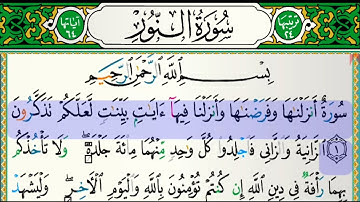 ترتيبها ٢٤ سُورَةُ النُّورِ آياتها ٦٤
بِسْمِ اللَّهِ الرَّحْمَٰنِ الرَّحِيمِ
سُورَةٌ أَنزَلْنَٰهَا وَفَرَضْنَٰهَا وَأَنزَلْنَا فِيهَآ ءَايَٰتٍۭ بَيِّنَٰتٍ لَّعَلَّكُمْ تَذَكَّرُونَ
١ ٱلزَّانِيَةُ وَٱلزَّانِي فَٱجْلِدُوا۟ كُلَّ وَٰحِدٍ مِّنْهُمَا مِا۟ئَةَ جَلْدَةٍ ۖ وَلَا تَأْخُذْكُم
بِهِمَا رَأْفَةٌ فِي دِينِ ٱللَّهِ إِن كُنتُمْ تُؤْمِنُونَ بِٱللَّهِ وَٱلْيَوْمِ ٱلْـَٔاخِرِ ۖ وَلْيَشْهَدْ